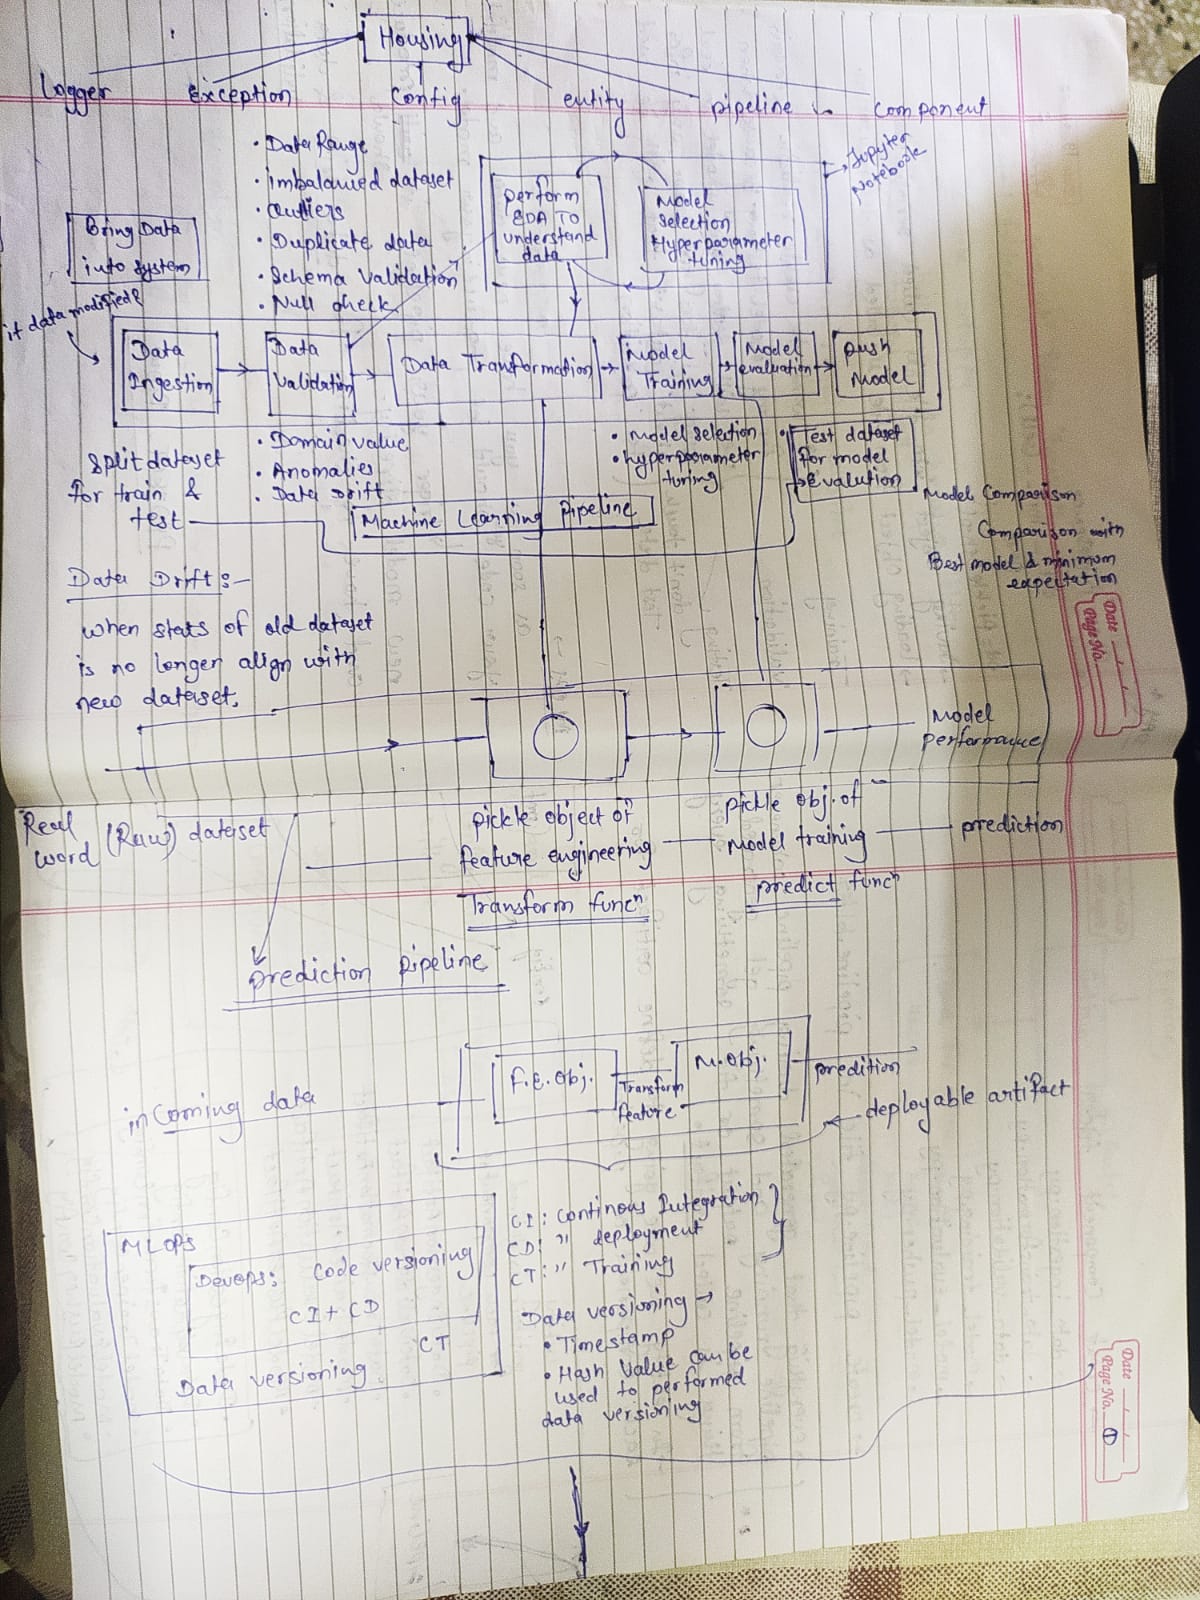 Housing
Logger Exception Config entity pipeline Component
• Data Range
• imbalanced dataset
• outliers
• Duplicate data
• Schema Validation
• Null check
Bring Data
into system
if data modified?
perform
EDA TO
understand
data
Model
selection
Hyperparameter
tuning
Jupyter
Notebook
Data
Ingestion
Data
Validation
Data Transformation
Model
Training
Model
evaluation
push
Model
split dataset
for train &
test
• Domain value
• Anomalies
• Data Drift
• Model selection
• hyperparameter
tuning
• Test dataset
for model
Evalution
Model Comparison
Comparison with
Best model & minimum
expectation
Machine Learning Pipeline
Data Drift :-
when stats of old dataset
is no longer align with
new dataset.
Date
Page No.
Model
performance
Real
word (Raw) dataset
pickle object of
feature engineering
Transform funcⁿ
pickle obj. of
Model training
predict funcⁿ
prediction
prediction pipeline
incoming data
F.E. Obj.
Transform
feature
M. Obj.
predition
deployable artifact
MLOPS
Devops: Code versioning
CI + CD
CT
Data versioning
CI : Continous Integration
CD: " deployment
CT: " Training
Data versioning →
• Timestamp
• Hash Value can be
used to performed
data versioning
Date
Page No. 1